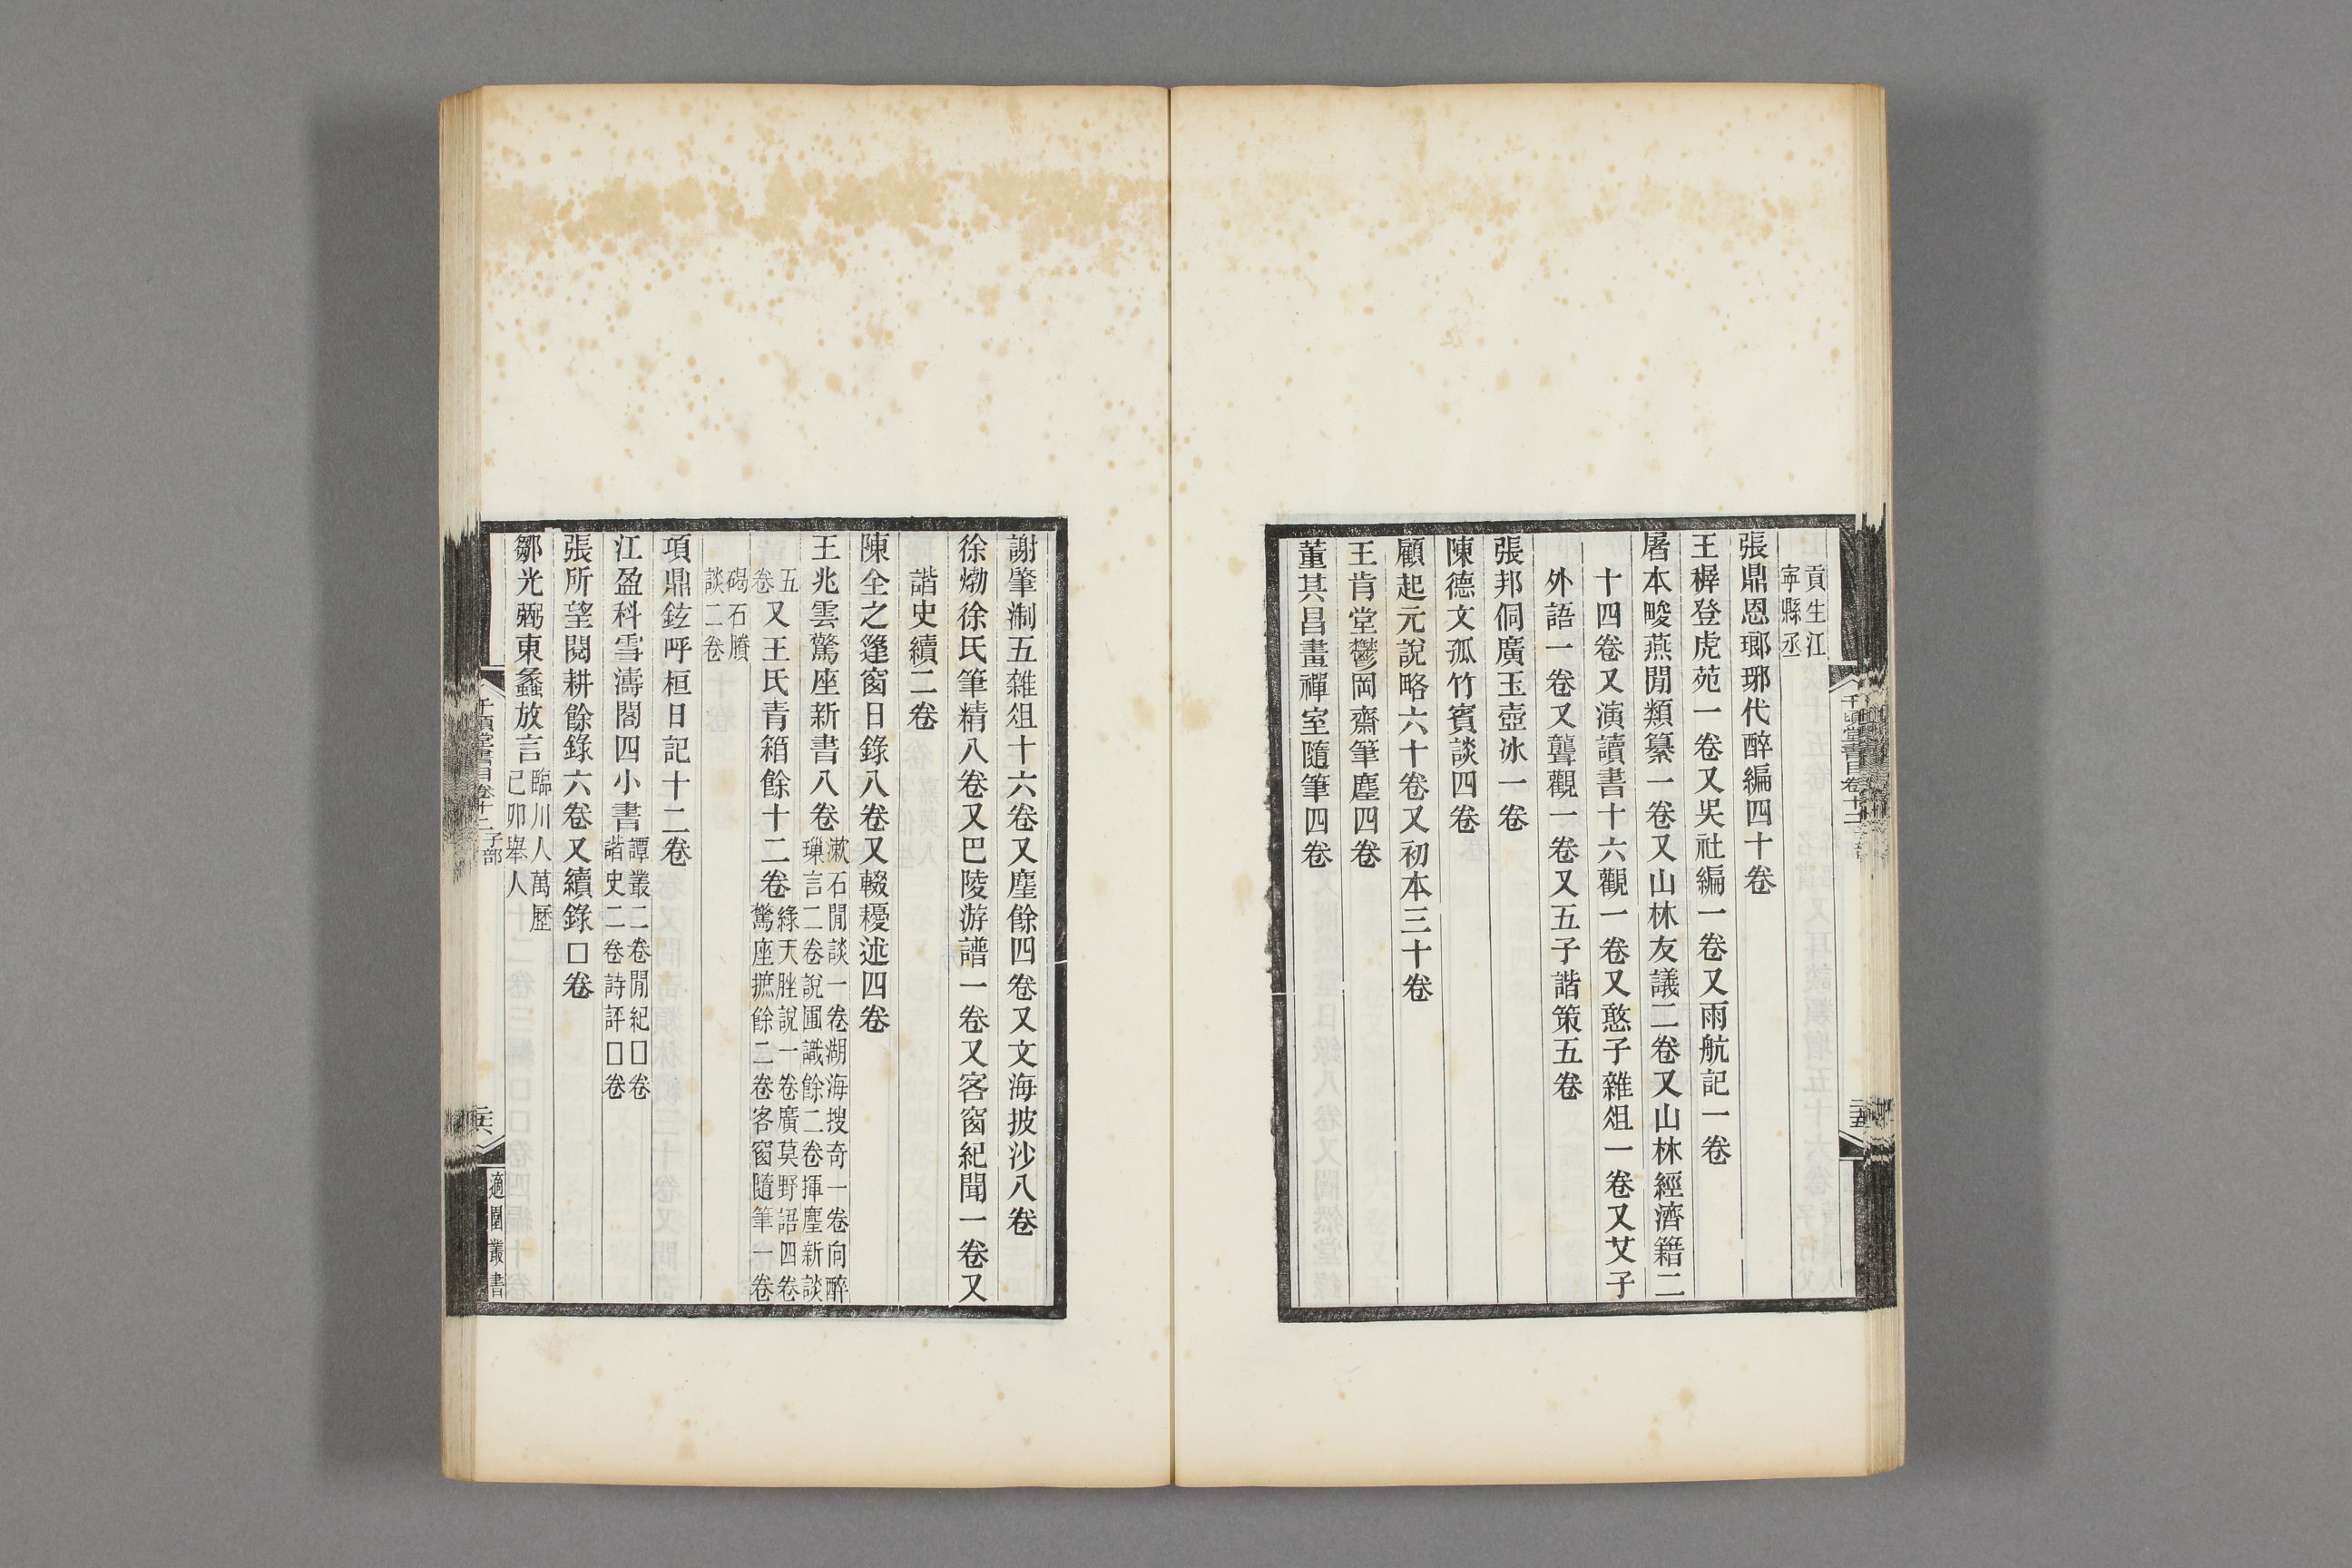 貢生江
寜縣丞
張鼎恩瑯琊代醉編四十卷
王穉登虎苑一卷又吳社編一卷又雨航記一卷
屠本畯燕閒類纂一卷又山林友議二卷又山林經濟籍二
十四卷又演讀書十六觀一卷又憨子雜俎一卷又艾子
外語一卷又聾觀一卷又五子諧策五卷
張邦侗廣玉壺冰一卷
陳德文孤竹賓談四卷
顧起元說略六十卷又初本三十卷
王肯堂鬱岡齋筆麈四卷
董其昌畫禪室隨筆四卷
千頃堂書目卷十二
二五
謝肇淛五雜俎十六卷又麈餘四卷又文海披沙八卷
徐𤊹徐氏筆精八卷又巴陵游譜一卷又客窗紀聞一卷又
諧史續二卷
陳全之篷窗日錄八卷又輟耰述四卷
王兆雲驚座新書八卷
漱石閒談一卷湖海搜奇一卷向醉
璅言二卷說圃識餘二卷揮麈新談
五
卷
又王氏青箱餘十二卷
綠天脞說一卷廣莫野語四卷
驚座摭餘二卷客窗隨筆一卷
碣石賸
談二卷
項鼎鉉呼桓日記十二卷
江盈科雪濤閣四小書
譚叢二卷閒紀□卷
諧史二卷詩評□卷
張所望閱耕餘錄六卷又續錄□卷
鄒光弼東蠡放言
臨川人萬歷
己卯舉人
千頃堂書目卷十二
子部
二六
適園叢書